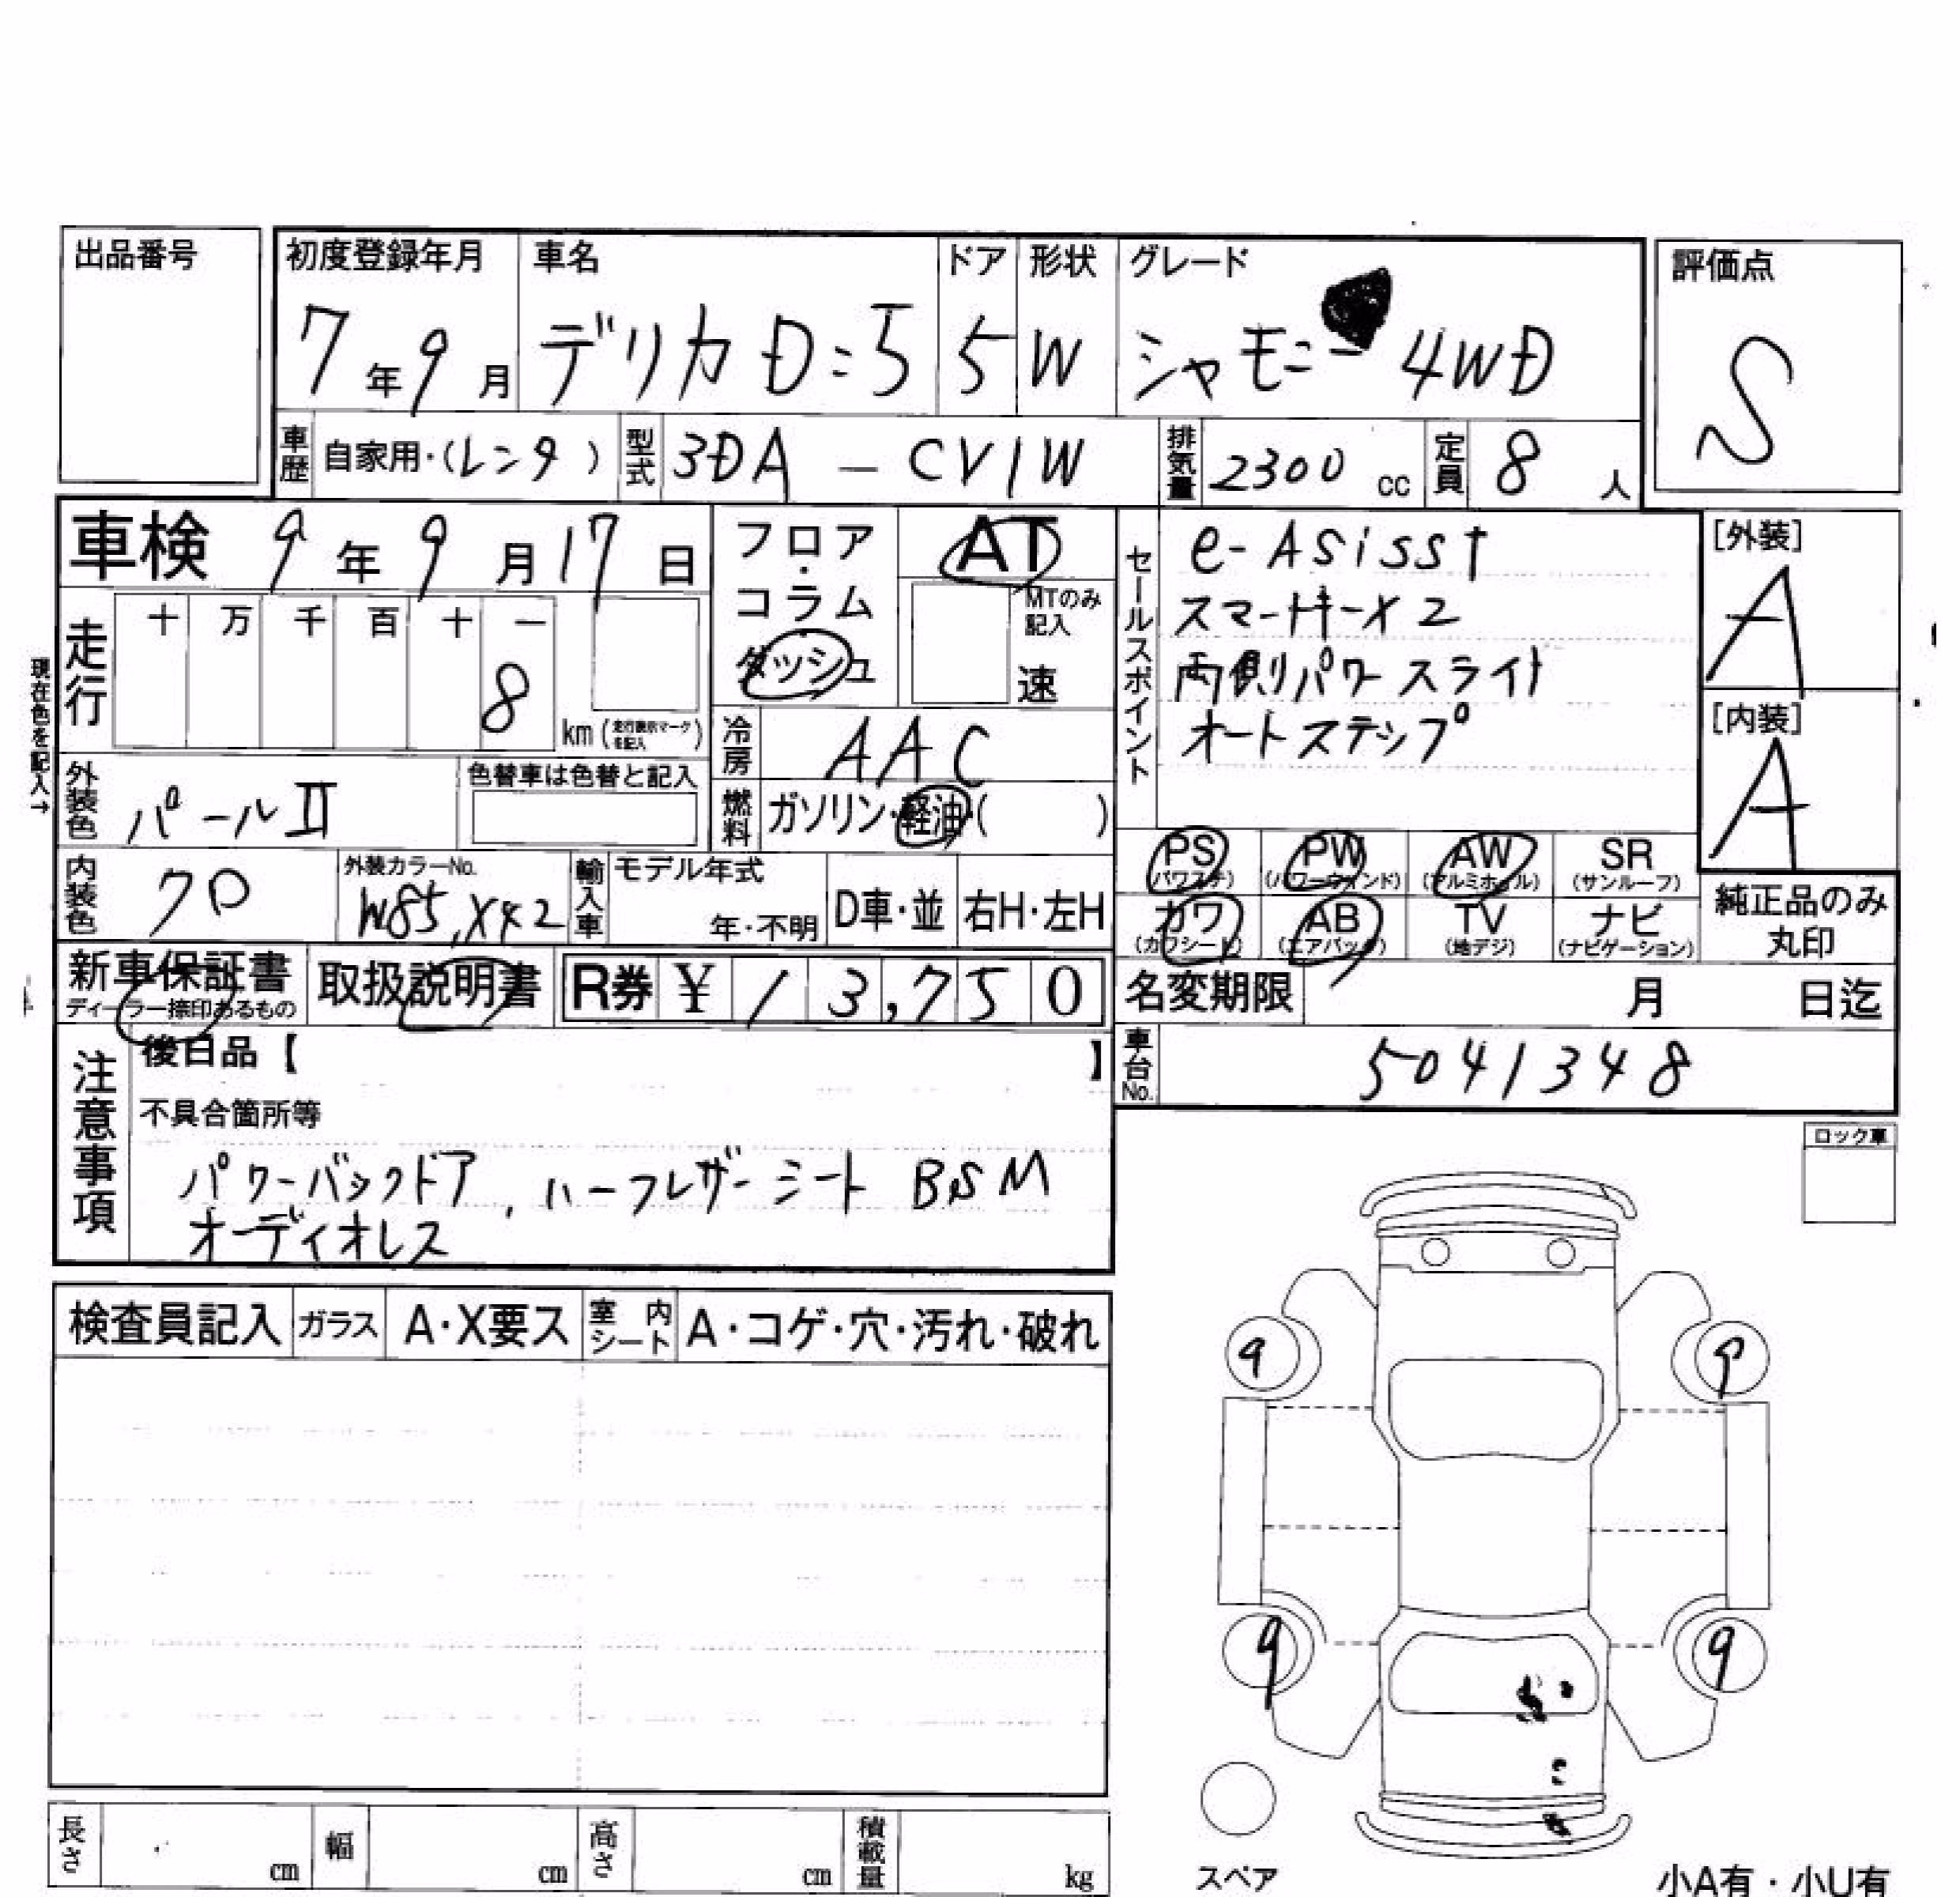 出品番号
初度登録年月 車名 ドア 形状 グレード 評価点
7年9月 デリカD:5 5 W シャモニー 4WD S
車歴 自家用・(レンタ) 型式 3DA - CV1W 排気量 2300 cc 定員 8人
車検 9年9月17日
フロア・コラム ダッシュ
AT
MTのみ記入
速
セールスポイント
e-Asisst
スマートキーX2
両側パワースライド
オートステップ
[外装]
A
[内装]
A
現在色を記入→
走行 十 万 千 百 十 一
8 km (走行表示マークを記入)
冷房 AAC
外装色 パールⅡ 色替車は色替と記入
燃料 ガソリン・軽油・( )
内装色 クロ 外装カラーNo. W85,X42
輸入車 モデル年式 年・不明 D車・並 右H・左H
PS (パワステ) PW (パワーウィンド) AW (アルミホイル) SR (サンルーフ)
カワ (カワシート) AB (エアバッグ) TV (地デジ) ナビ (ナビゲーション)
純正品のみ丸印
新車保証書 ディーラー捺印あるもの 取扱説明書 R券 ¥ 13,750
名変期限 月 日迄
車台No. 5041348
注意事項
後日品【 】
不具合箇所等
パワーバックドア, ハーフレザーシート BSM
オーディオレス
ロック車
検査員記入 ガラス A・X要ス 室内シート A・コゲ・穴・汚れ・破れ
9 9
9 9
長さ cm 幅 cm 高さ cm 積載量 kg
スペア
小A有・小U有